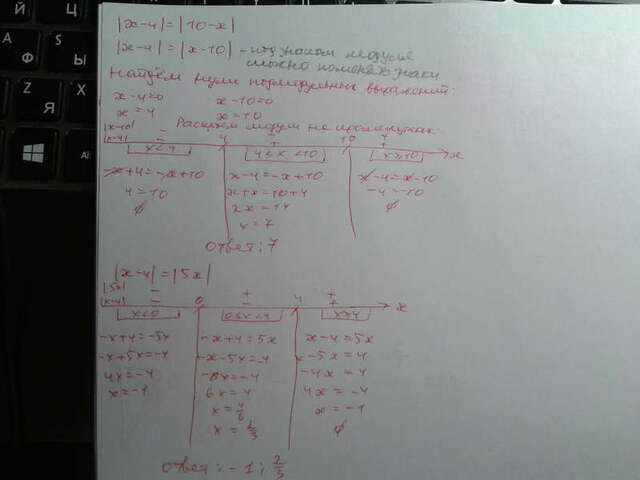 |x-4|=|10-x|
|x-4|=|x-10| - под знаком модуля
можно поменять знаки
Найдём нули подмодульных выражений:
x-4=0 x-10=0
x=4 x=10
Раскроем модули на промежутках
|x-10| - - +
|x-4| - 4 + 10 +
x<4 4≤x<10 x≥10 x
-x+4=-x+10 x-4=-x+10 x-4=x-10
4=10 x+x=10+4 -4=-10
∅ 2x=14 ∅
x=7
Ответ: 7
|x-4|=|5x|
|5x| - + +
|x-4| - 0 - 4 + x
x<0 0≤x<4 x≥4
-x+4=-5x -x+4=5x x-4=5x
-x+5x=-4 -x-5x=-4 x-5x=4
4x=-4 -6x=-4 -4x=4
x=-1 6x=4 4x=-4
x=4/6 x=-1
x=2/3 ∅
Ответ: -1; 2/3
Й
Ц
Ф
Ы
Я